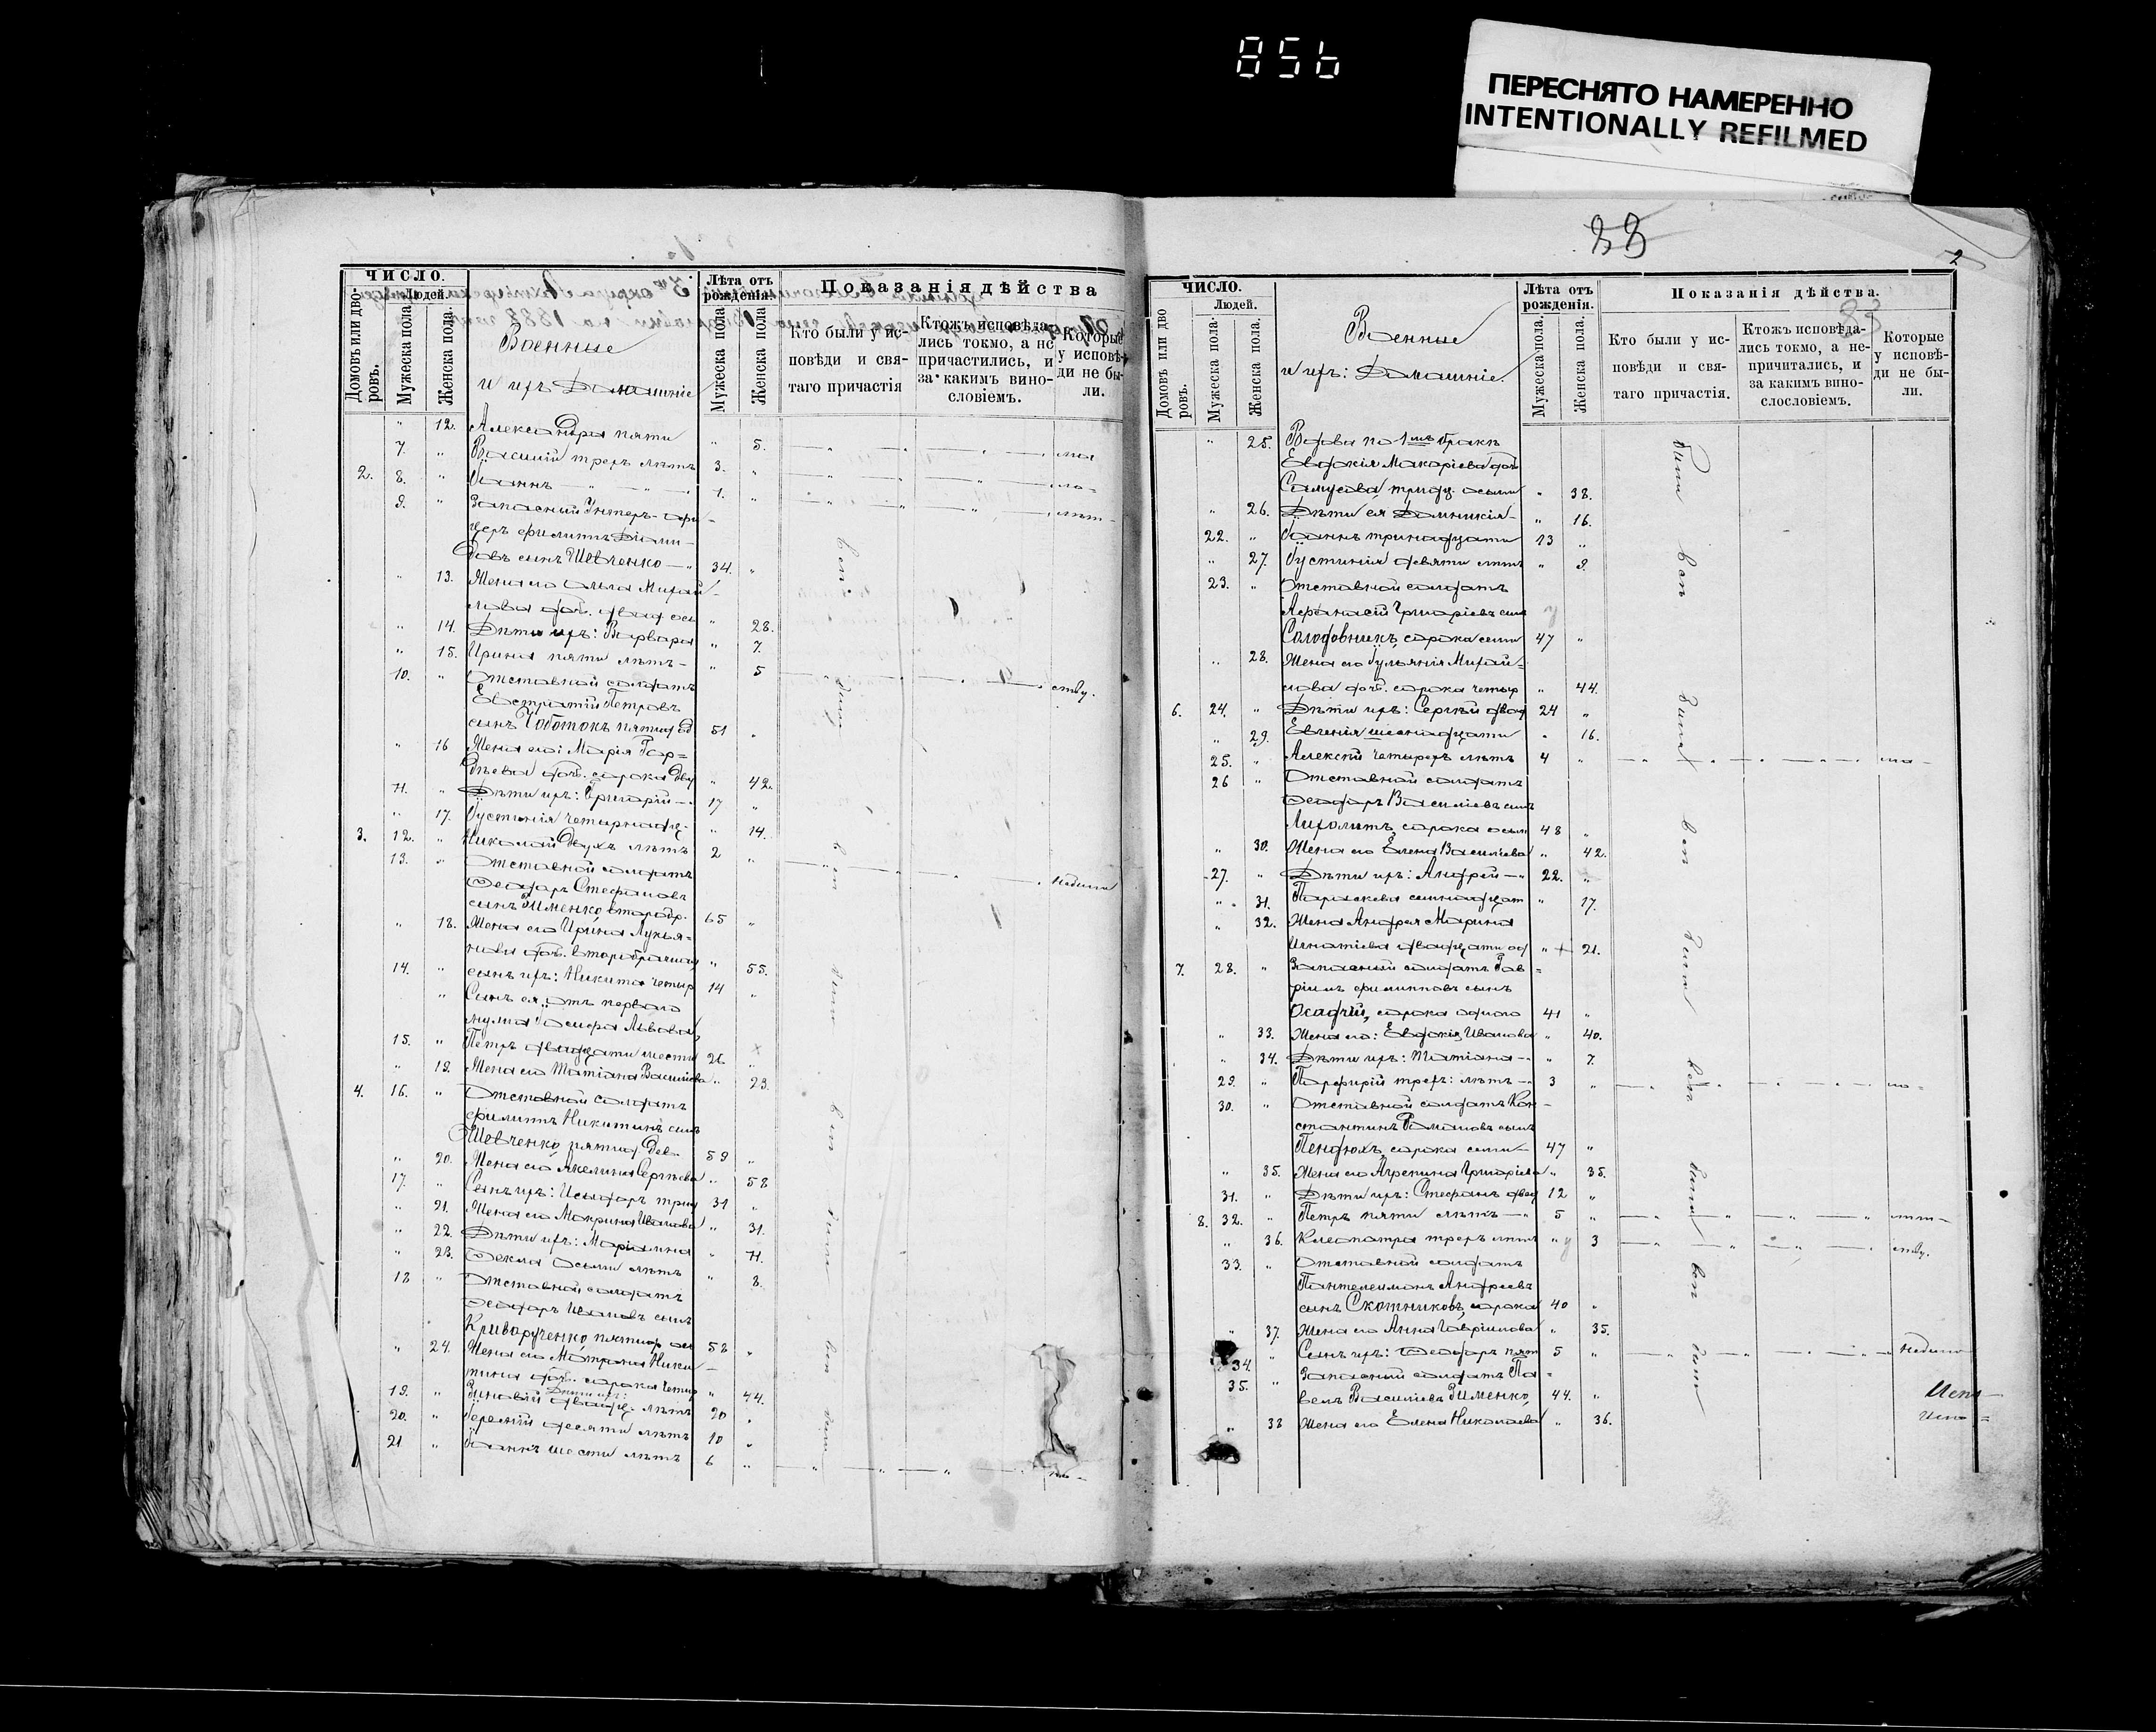 856
ПЕРЕСНЯТО НАМЕРЕННО
INTENTIONALLY REFILMED
ЧИСЛО.
Людей.
Домовъ или дво-
ровъ.
Мужеска пола.
Женска пола.
Военные
и ихъ Домашніе
Лѣта отъ
рожденія.
Мужеска пола
Женска пола
Показанія дѣйства
Кто были у ис-
повѣди и свя-
таго причастія
Ктожъ исповѣда-
лись токмо, а не
причастились, и
за какимъ вино-
словіемъ.
Которые
у исповѣ-
ди не бы-
ли.
" 12. Александра пяти " 5.
7. " Василій трехъ лѣтъ 3. "
2. 8. " Іоаннъ 1. "
9. " Запасный Унтеръ-офи-
церъ Филиппъ Діоми-
довъ сынъ Шевченко 34. "
" 13. Жена его Ольга Михай-
лова доч. двад. ось " 28.
" 14. Дѣти ихъ: Варвара " 7.
" 15. Ирина пяти лѣтъ " 5
10. " Отставной солдатъ
Евстратій Петровъ
сынъ Чоботокъ пятид. од 51 "
" 16 Жена его: Марія Гор-
дѣева доч. сорока дву " 42.
11. " Дѣти ихъ: Григорій 17 "
" 17. Іустинія четырнадц. " 14.
3. 12. " Николай двухъ лѣтъ 2 "
13. " Отставной солдатъ
Ѳеодоръ Стефановъ
сынъ Зименко, второбр. 65 "
" 18. Жена его Ирина Лукья-
нова доч. второбрачная " 55.
14. " сынъ ихъ: Никита четыр 14 "
" Сынъ ея отъ перваго
мужа Іосифа Львова
15. " Петръ двадцати шести 26 "
" 19. Жена его Татіана Василіева " 23.
4. 16. " Отставной солдатъ
Филиппъ Никитинъ сынъ
Шевченко, пятид. дев. 59 "
" 20. Жена его Акелина Сергѣева " 58
17. " Сынъ ихъ: Исидоръ трид 31 "
" 21. Жена его Макрина Иванова " 31.
" 22. Дѣти ихъ: Маріамна " 11.
" 23. Ѳекла осьми лѣтъ " 8.
18 " Отставной солдатъ
Ѳеодоръ Ивановъ сынъ
Криворученко, пятид. ос 58 "
" 24. Жена его Матрона Ники-
тина доч. сорока четыр " 44.
Дѣти ихъ:
19. " Зиновій двадц. лѣтъ 20 "
20. " десяти лѣтъ 10 "
21 " Іоаннъ шести лѣтъ 6 "
33
2
33
ЧИСЛО.
Людей.
Домовъ или дво
ровъ.
Мужеска пола.
Женска пола.
Военные
и ихъ: Домашніе.
Лѣта отъ
рожденія.
Мужеска пола.
Женска пола.
Показанія дѣйства.
Кто были у ис-
повѣди и свя-
таго причастія.
Ктожъ исповѣда-
лись токмо, а не-
причитались, и
за какимъ вино-
слословіемъ.
Которые
у исповѣ-
ди не бы-
ли.
" 25. Вдова по 1мъ бракѣ
Евдокія Макаріева доч
Самусова, тридц. осьми " 38.
" 26. Дѣти ея Домникія " 16.
22. " Іоаннъ тринадцати 13 "
" 27. Іустинія девяти лѣтъ " 9.
23. " Отставной солдатъ
Афанасій Григоріевъ сынъ
Солодовникъ, сорока семи 47 "
" 28. Жена его Іуліянія Михай-
лова доч. сорока четыр " 44.
6. 24. " Дѣти ихъ: Сергѣй двад 24 "
" 29. Евгенія шеснадцати " 16.
25. " Алексій четырехъ лѣтъ 4 "
26 " Отставной солдатъ
Ѳеодоръ Василіевъ сынъ
сорока осьм 48 "
" 30. Жена его Елена Василіева " 42.
27. " Дѣти ихъ: Андрей 22. "
" 31. Параскева семнадцат " 17.
" 32. Жена Андрея Марина
Игнатіева двадцати од " 21.
7. 28. " Запасный солдатъ Гав-
ріилъ Филипповъ сынъ
Осадчій, сорока одного 41 "
" 33. Жена его: Евдокія Иванова " 40.
" 34. Дѣти ихъ: Татіана " 7.
29. " Порфирій трехъ: лѣтъ 3 "
30. " Отставной солдатъ Кон-
стантинъ Романовъ сынъ
Пендюхъ, сорока семи 47 "
" 35. Жена его Агрепина Григоріева " 35.
31. " Дѣти ихъ: Стефанъ двен 12 "
8. 32. " Петръ пяти лѣтъ 5 "
" 36. Клеопатра трехъ лѣтъ " 3
33. " Отставной солдатъ
Пантелеимонъ Андреевъ
сынъ Скотниковъ, сорока 40 "
" 37. Жена его Анна Гавріилова " 35.
34. " Сынъ ихъ: Ѳеодоръ пят 5 "
35. " Запасный солдатъ Па-
велъ Василіевъ Зименко, 44. "
" 38 Жена его Елена Николаева " 36.